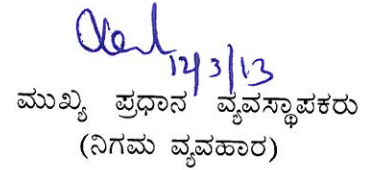 12/3/13
ಮುಖ್ಯ ಪ್ರಧಾನ ವ್ಯವಸ್ಥಾಪಕರು
(ನಿಗಮ ವ್ಯವಹಾರ)